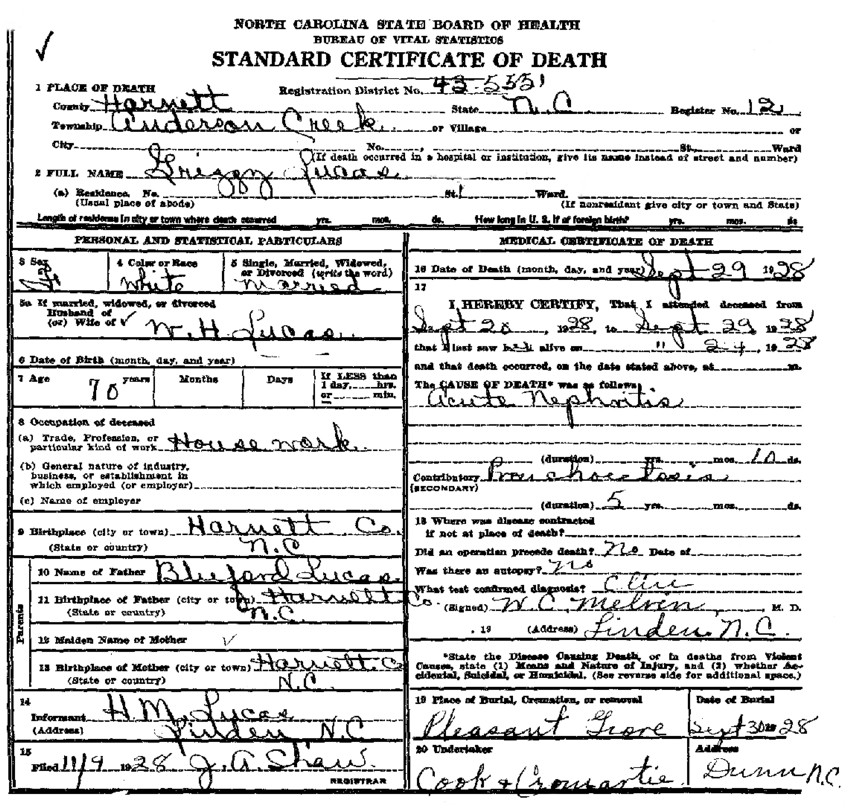 ✓
NORTH CAROLINA STATE BOARD OF HEALTH
BUREAU OF VITAL STATISTICS
STANDARD CERTIFICATE OF DEATH
1 PLACE OF DEATH Registration District No. 43-5551
County Harnett State N.C Register No. 12
Township Anderson Creek or Village or
City No. St. Ward
(If death occurred in a hospital or institution, give its name instead of street and number)
2 FULL NAME Grizzy Lucas
(a) Residence. No. St. Ward.
(Usual place of abode) (If nonresident give city or town and State)
Length of residence in city or town where death occurred yrs. mos. ds. How long in U. S. if of foreign birth? yrs. mos. ds
PERSONAL AND STATISTICAL PARTICULARS
3 Sex F
4 Color or Race White
5 Single, Married, Widowed, or Divorced (write the word) Married
5a If married, widowed, or divorced
Husband of
(or) Wife of ✓ W. H. Lucas
6 Date of Birth (month, day, and year)
7 Age 70 years Months Days If LESS than 1 day, hrs. or min.
8 Occupation of deceased
(a) Trade, Profession, or particular kind of work House work
(b) General nature of industry, business, or establishment in which employed (or employer)
(c) Name of employer
9 Birthplace (city or town) Harnett Co.
(State or country) N.C
Parents
10 Name of Father Blueford Lucas
11 Birthplace of Father (city or town) Harnett Co.
(State or country) N.C.
12 Maiden Name of Mother ✓
13 Birthplace of Mother (city or town) Harnett C
(State or country) N.C.
14
Informant H.M. Lucas
(Address) Linden N.C
15
Filed 11/9 1928 J. A. Shaw
REGISTRAR
MEDICAL CERTIFICATE OF DEATH
16 Date of Death (month, day, and year) Sept 29 1928
17
I HEREBY CERTIFY, That I attended deceased from
Sept 20, 1928, to Sept 29, 1928
that I last saw alive on " 24, 1928
and that death occurred, on the date stated above, at m.
The CAUSE OF DEATH* was as follows:
Acute Nephritis
(duration) yrs. mos. 10 ds.
Contributory Bronchoectosis
(SECONDARY)
(duration) 5 yrs. mos. ds.
18 Where was disease contracted
if not at place of death?
Did an operation precede death? No Date of
Was there an autopsy? No
What test confirmed diagnosis? Clin
(Signed) W. C. Melvin, M. D.
, 19 (Address) Linden, N.C.
*State the Disease Causing Death, or in deaths from Violent
Causes, state (1) Means and Nature of Injury, and (2) whether Ac-
cidental, Suicidal, or Homicidal. (See reverse side for additional space.)
19 Place of Burial, Cremation, or removal Date of Burial
Pleasant Grove Sept 30 1928
20 Undertaker Address
Cook & Cromartie Dunn N.C.